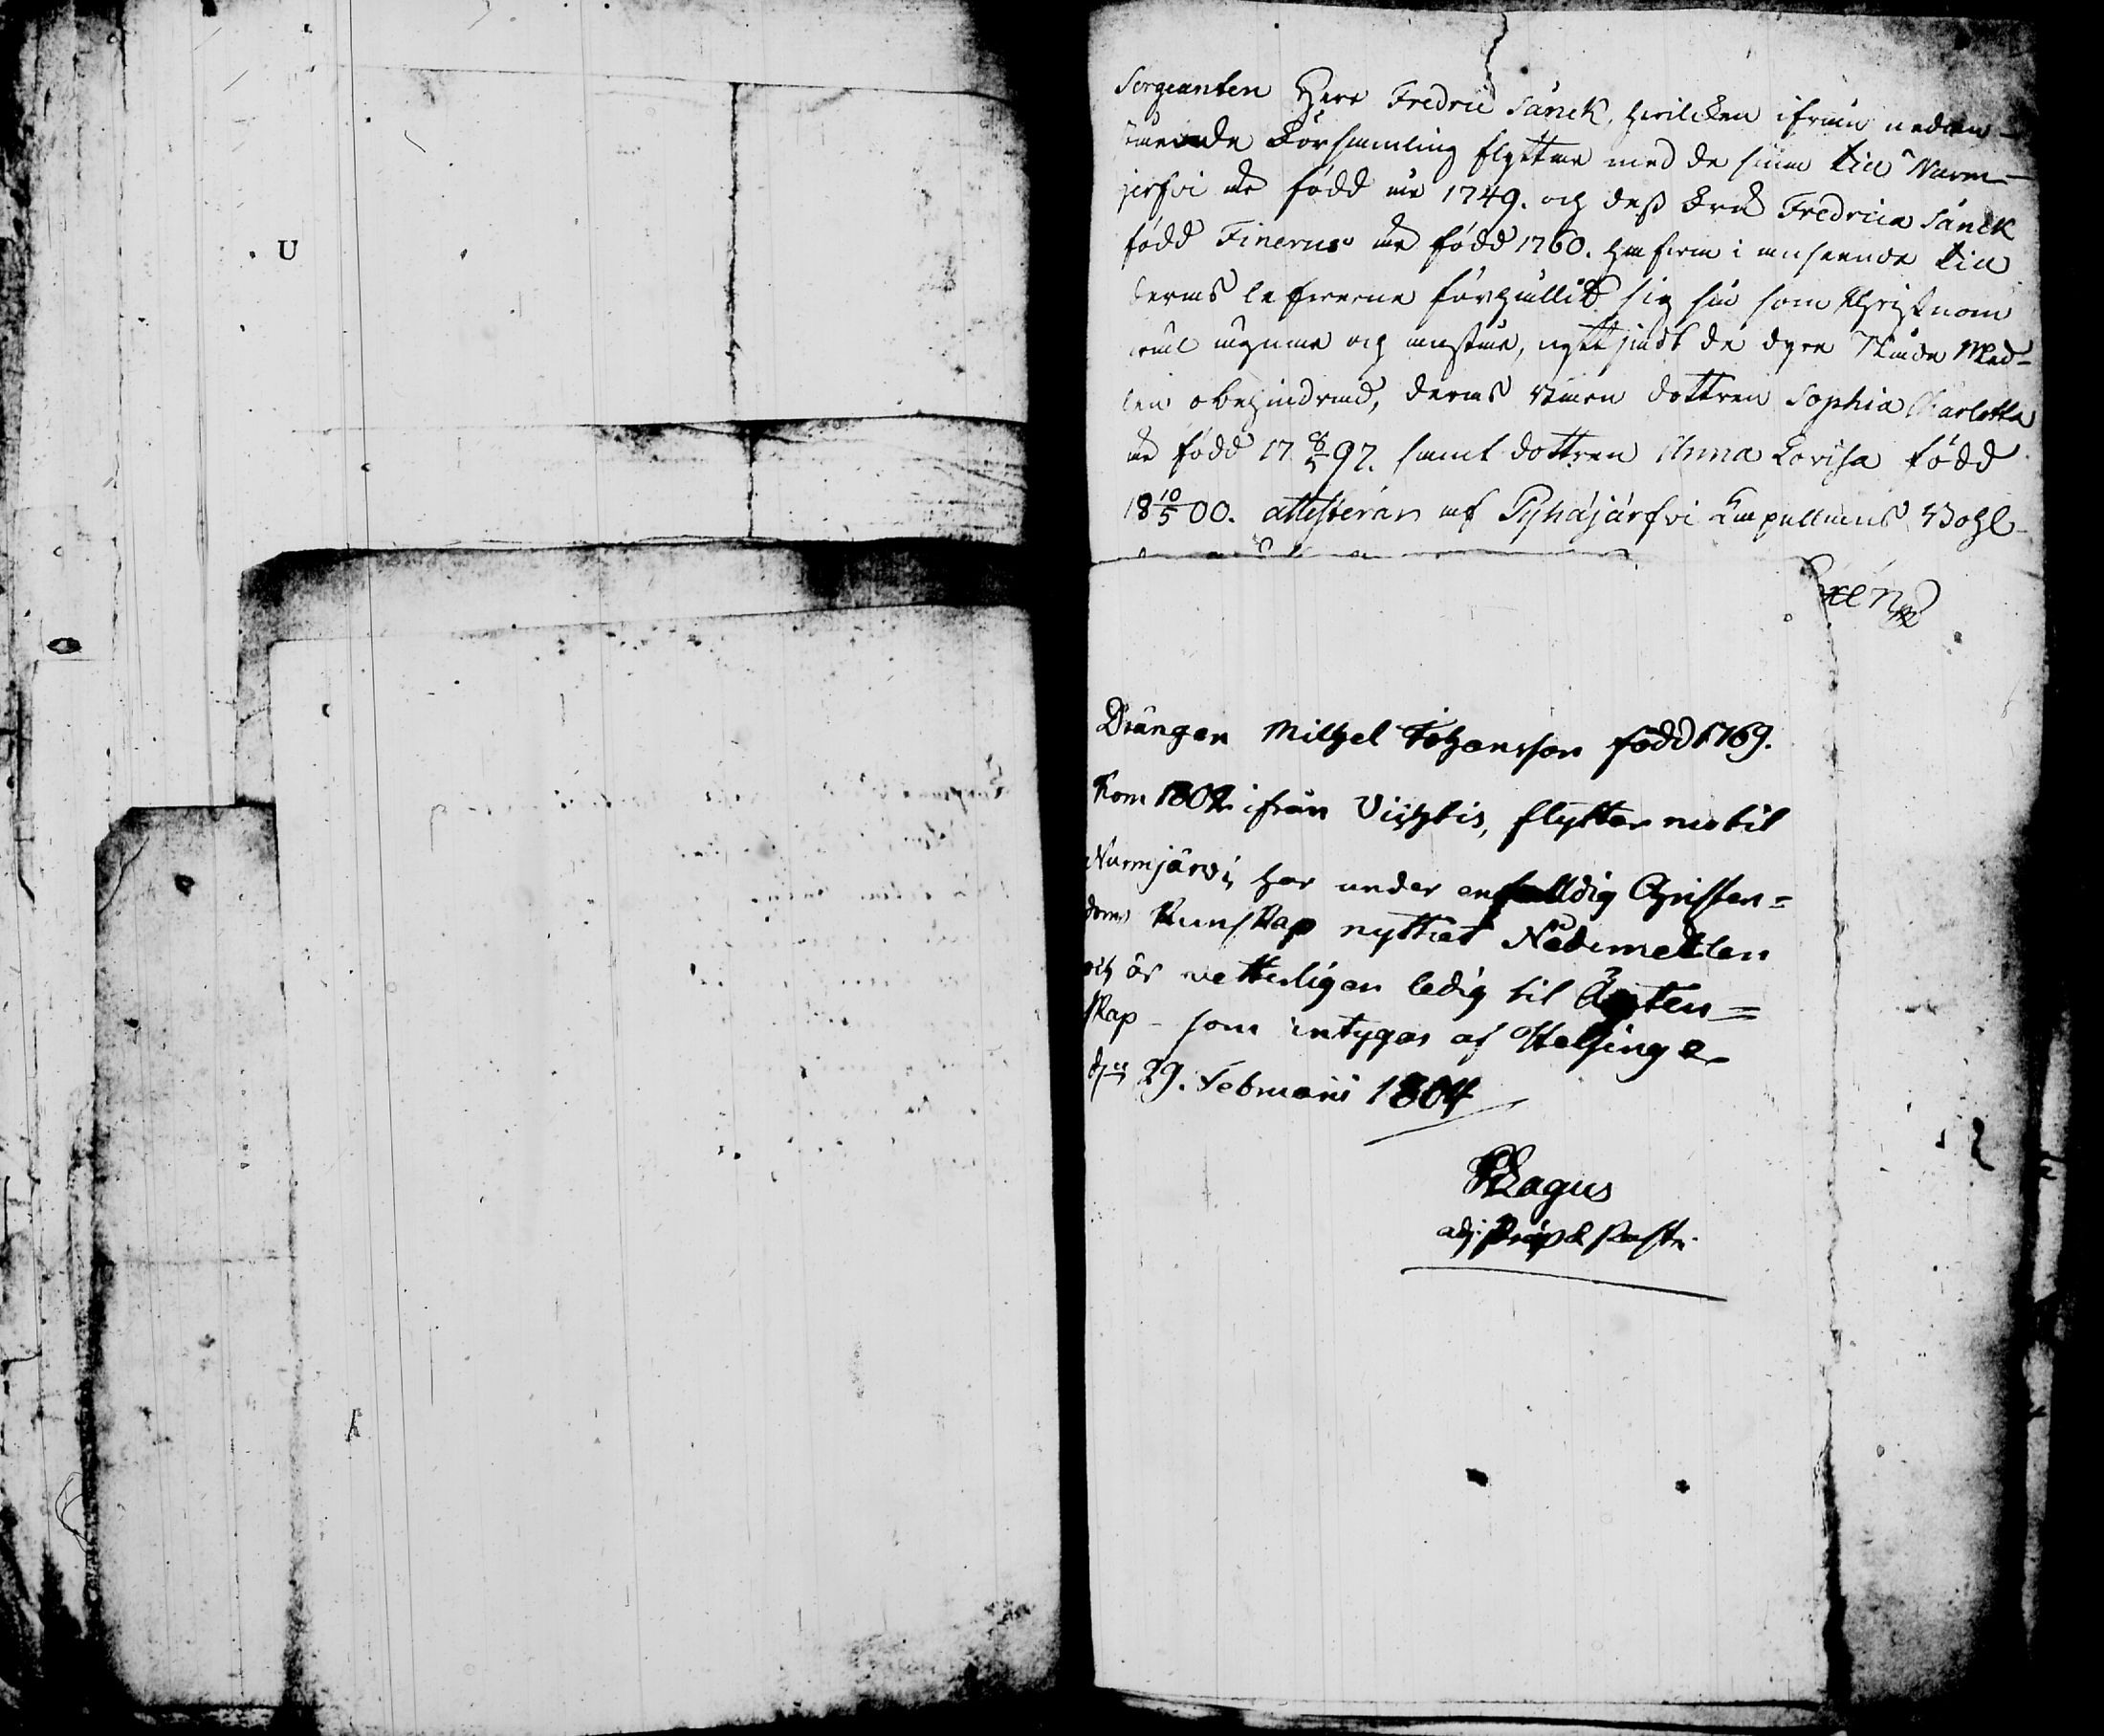 U
Sergeanten Herr Fredric Sänck, hvilcken ifrån nedan-
stående Församling flyttar med de sina till Nurm-
jerfvi är född år 1749. och dess Fru Fredrica Sänck
född Finerus är född 1760. hafva i anseende till
deras lefverne förhållit sig så som Christnom
wäl ägnar och anstår, nyttjadt de dyra Nåde Med-
len obehindrad, deras dottren Sophia Charlotta
är född 17 8/5 97. samt dottren Anna Lovisa född
18 10/5 00. attesterar af Pyhäjärfvi Capellans Bohl
Drängen Michel Johansson född 1769.
Kom 1802 ifrån Vichtis, flyttar nu til
Nurmjärvi, har under enfalldig Christen=
doms Kunskap nyttiat Nådemedlen
och är vetterligen ledig til Ägten=
skap - som intygas af Helsinge
d. 29. Februarii 1804
Kagus
adj.